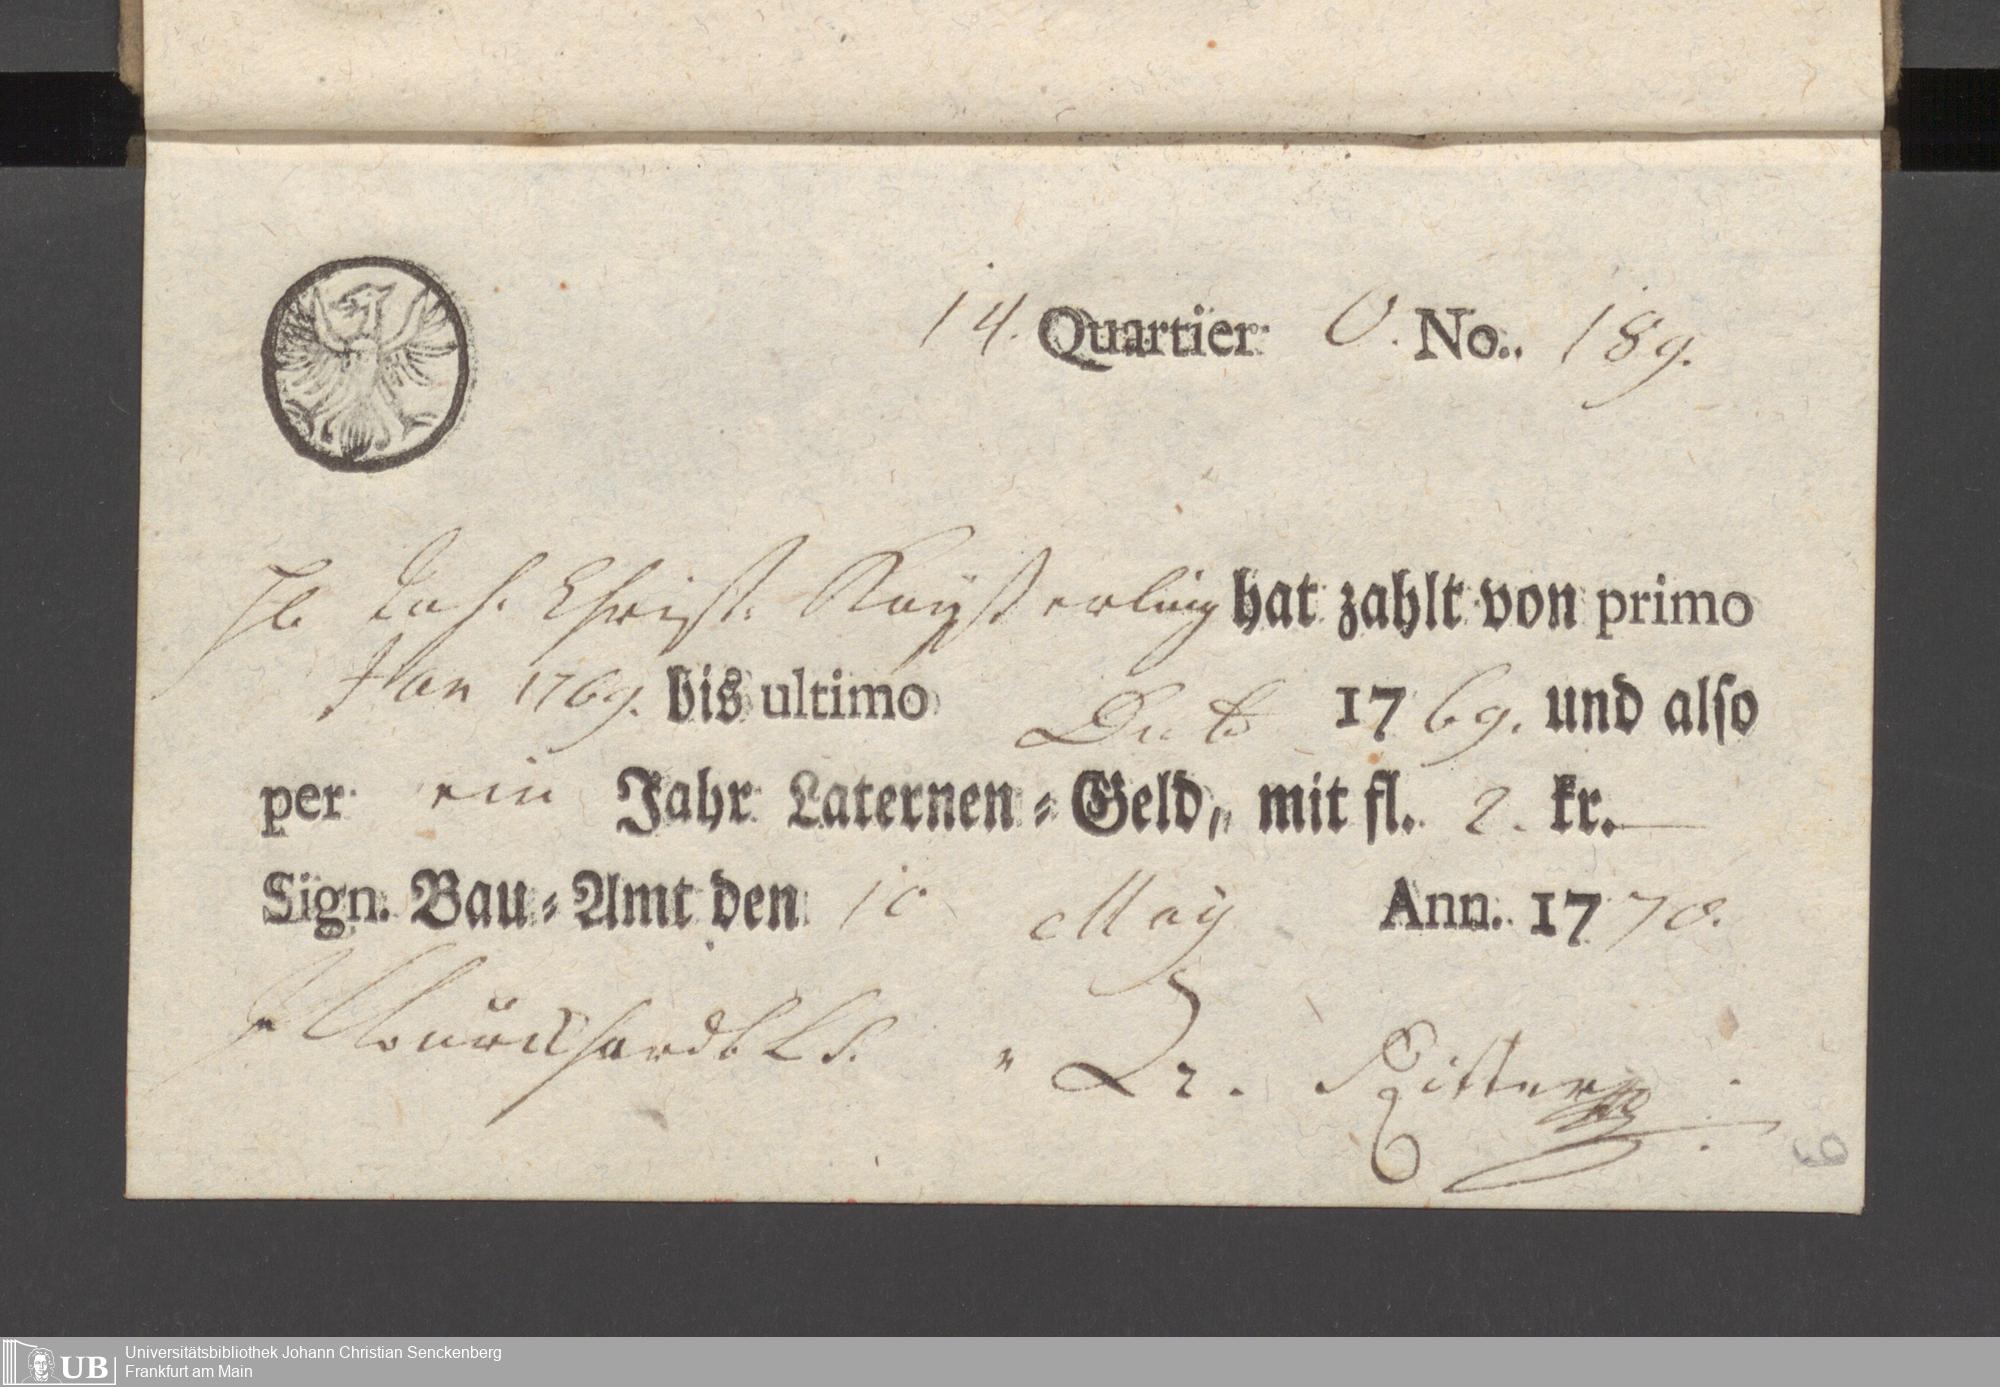 14. Quartier O. No. 189.
Joh. Christ. Kayßerling hat zahlt von primo
Jan 1769. bis ultimo Dec 1769. und also
per ein Jahr Laternen-Geld, mit fl. 2. kr. —
Sign. Bau-Amt den 10 May Ann. 1770.
Dr. Ritter
UB
Universitätsbibliothek Johann Christian Senckenberg
Frankfurt am Main